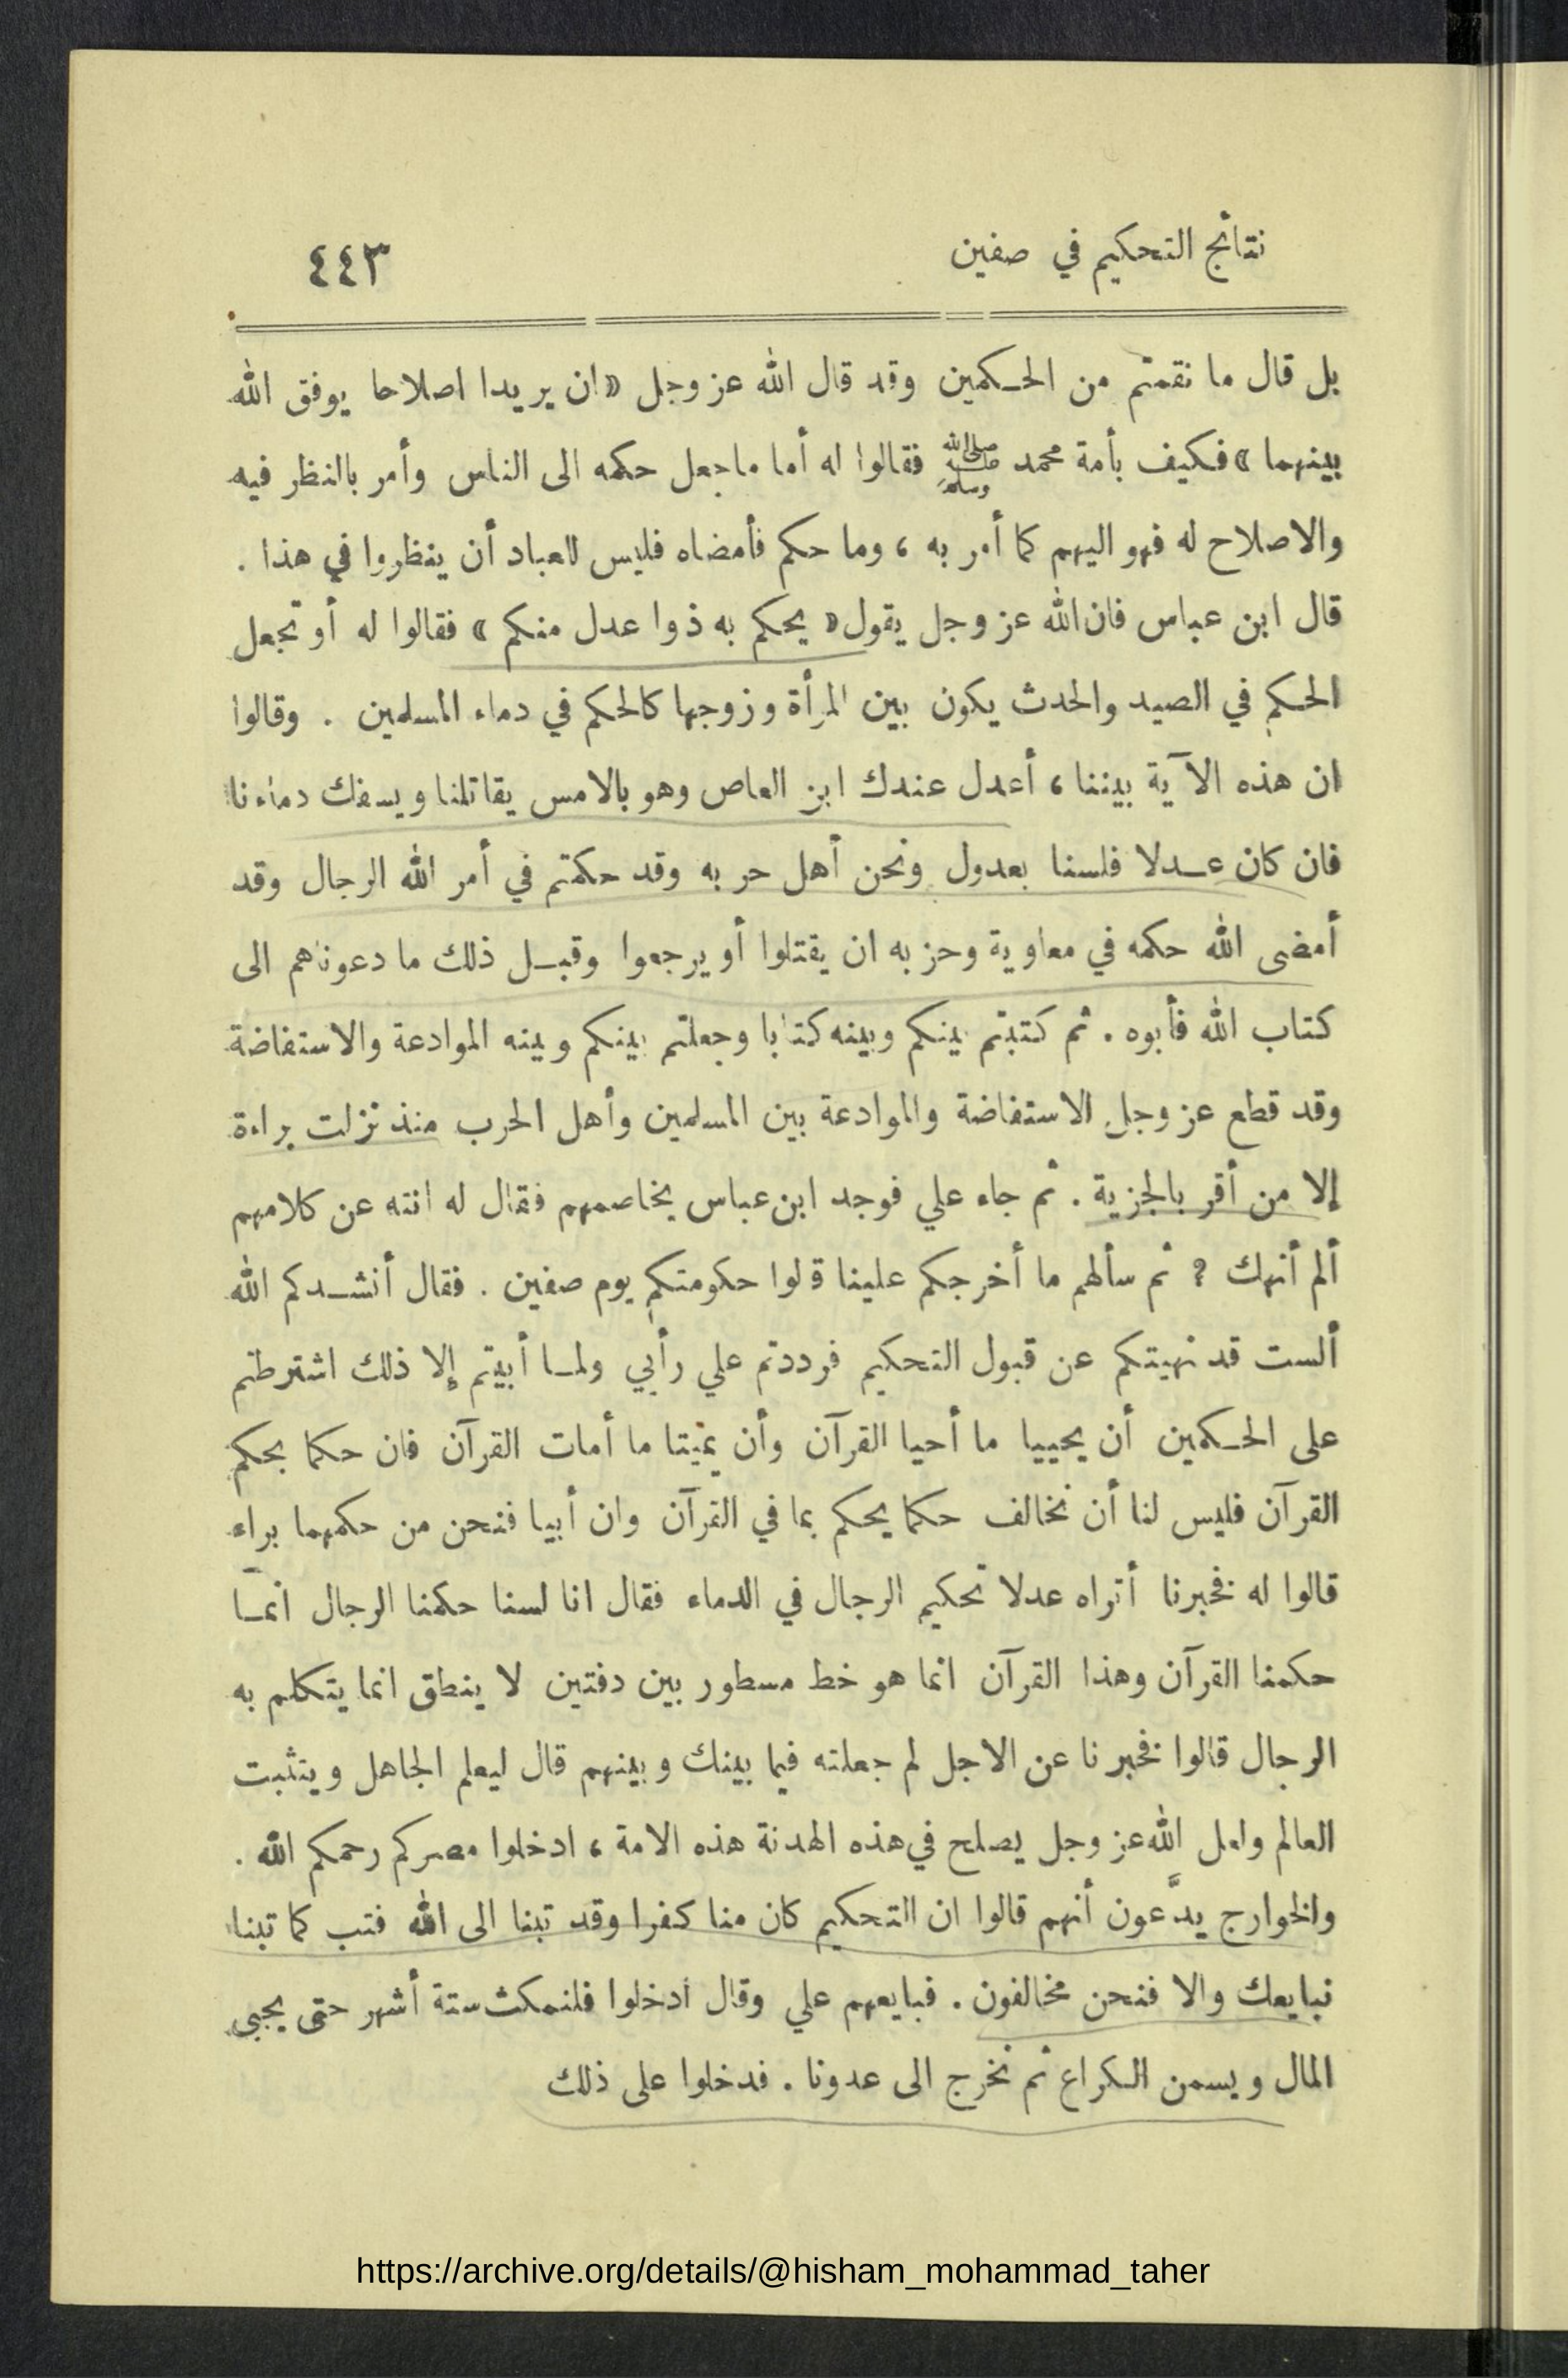 نتائج التحكيم في صفين ٤٤٣
بل قال ما نقمتم من الحكمين وقد قال الله عز وجل «ان يريدا اصلاحا يوفق الله
بينهما» فكيف بأمة محمد ﷺ فقالوا له أما ماجعل حكمه الى الناس وأمر بالنظر فيه
والاصلاح له فهو اليهم كما أمر به ، وما حكم فأمضاه فليس للعباد أن ينظروا في هذا .
قال ابن عباس فان الله عز وجل يقول « يحكم به ذوا عدل منكم » فقالوا له أو تجعل
الحكم في الصيد والحدث يكون بين المرأة وزوجها كالحكم في دماء المسلمين . وقالوا
ان هذه الآية بيننا ، أعدل عندك ابن العاص وهو بالامس يقاتلنا ويسفك دماءنا
فان كان عدلا فلسنا بعدول ونحن أهل حربه وقد حكمتم في أمر الله الرجال وقد
أمضى الله حكمه في معاوية وحزبه ان يقتلوا أو يرجعوا وقبل ذلك ما دعوناهم الى
كتاب الله فأبوه . ثم كتبتم بينكم وبينه كتابا وجعلتم بينكم وبينه الموادعة والاستفاضة
وقد قطع عز وجل الاستفاضة والموادعة بين المسلمين وأهل الحرب منذ نزلت براءة
إلا من أقر بالجزية . ثم جاء علي فوجد ابن عباس يخاصمهم فقال له انته عن كلامهم
ألم أنهك ? ثم سألهم ما أخرجكم علينا قالوا حكومتكم يوم صفين . فقال أنشدكم الله
ألست قد نهيتكم عن قبول التحكيم فرددتم علي رأيي ولما أبيتم إلا ذلك اشترطتم
على الحكمين أن يحييا ما أحيا القرآن وأن يميتا ما أمات القرآن فان حكما بحكم
القرآن فليس لنا أن نخالف حكما يحكم بما في القرآن وان أبيا فنحن من حكمهما براء
قالوا له فخبرنا أتراه عدلا تحكيم الرجال في الدماء فقال انا لسنا حكمنا الرجال انما
حكمنا القرآن وهذا القرآن انما هو خط مسطور بين دفتين لا ينطق انما يتكلم به
الرجال قالوا فخبرنا عن الاجل لم جعلته فيما بينك وبينهم قال ليعلم الجاهل ويتثبت
العالم ولعل الله عز وجل يصلح في هذه الهدنة هذه الامة ، ادخلوا مصركم رحمكم الله .
والخوارج يدَّعون أنهم قالوا ان التحكيم كان منا كفرا وقد تبنا الى الله فتب كما تبنا
نبايعك والا فنحن مخالفون . فبايعهم علي وقال ادخلوا فلنمكث ستة أشهر حتى يجبى
المال ويسمن الكراع ثم نخرج الى عدونا . فدخلوا على ذلك
https://archive.org/details/@hisham_mohammad_taher